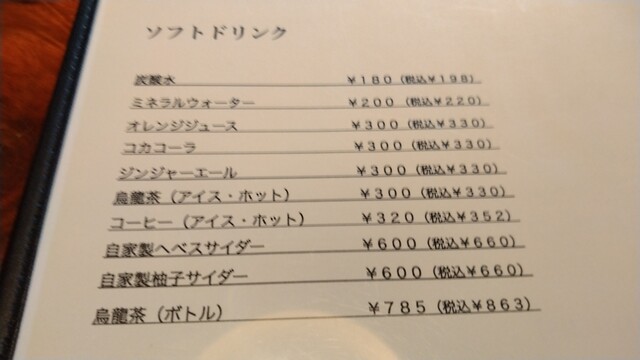 ソフトドリンク
炭酸水 ￥１８０（税込￥１９８）
ミネラルウォーター ￥２００（税込￥２２０）
オレンジジュース ￥３００（税込￥３３０）
コカコーラ ￥３００（税込￥３３０）
ジンジャーエール ￥３００（税込￥３３０）
烏龍茶（アイス・ホット） ￥３００（税込￥３３０）
コーヒー（アイス・ホット） ￥３２０（税込￥３５２）
自家製ヘベスサイダー ￥６００（税込￥６６０）
自家製柚子サイダー ￥６００（税込￥６６０）
烏龍茶（ボトル） ￥７８５（税込￥８６３）